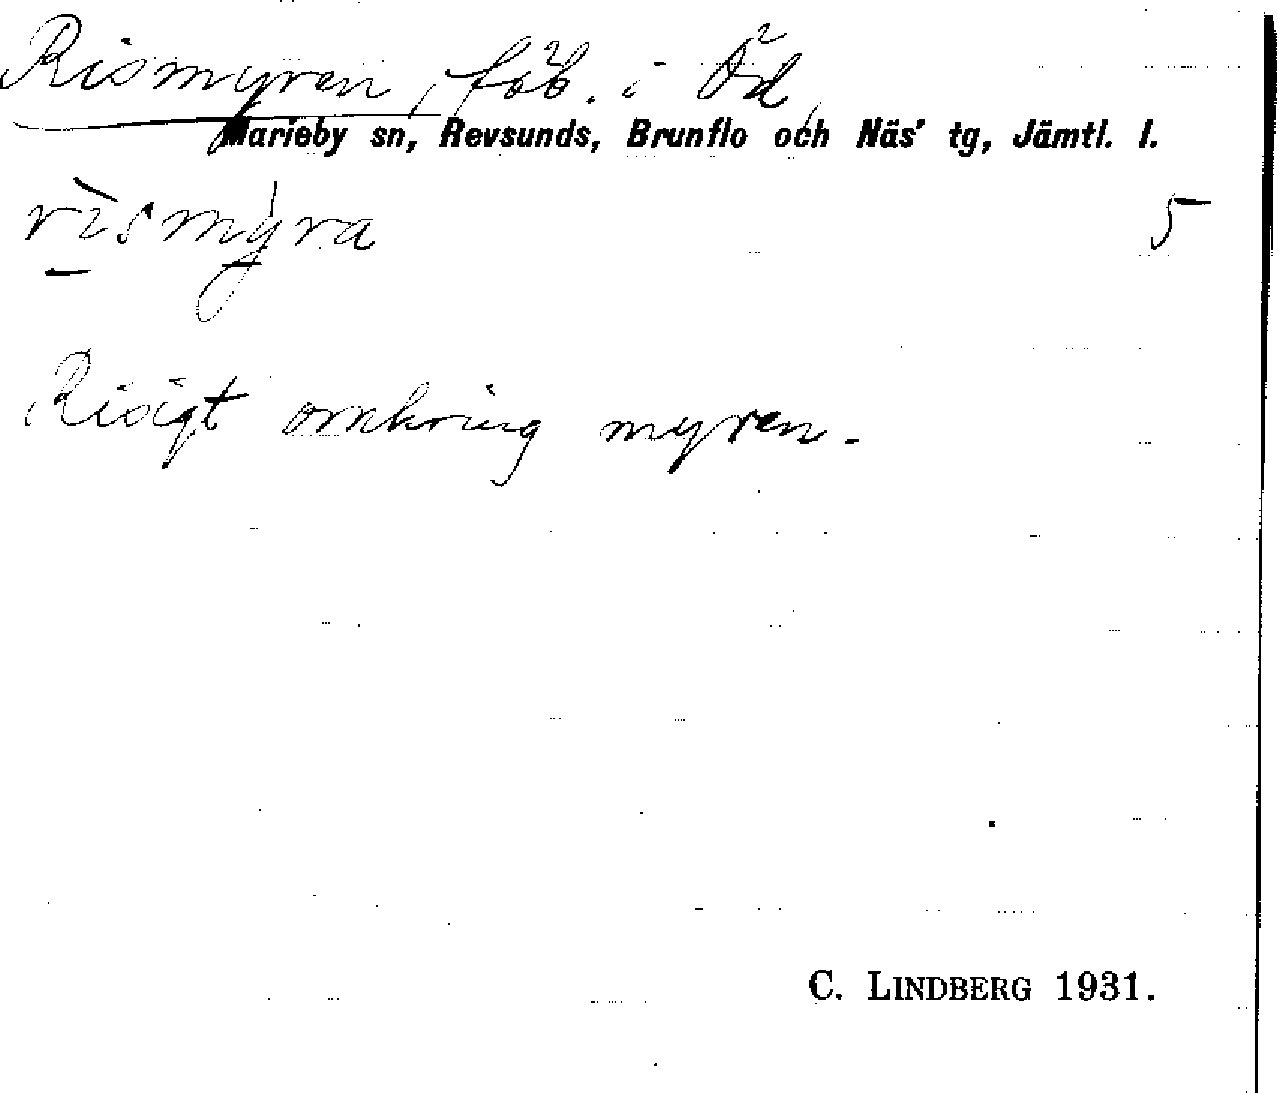 Rismyren, fäb. i Öd,
Marieby sn, Revsunds, Brunflo och Näs' tg, Jämtl. l.
rìsmy̠ra 5
Risigt omkring myren.
C. LINDBERG 1931.